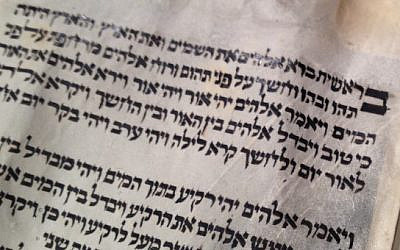 בראשית ברא אלהים את השמים ואת הארץ והארץ היתה
תהו ובהו וחשך על פני תהום ורוח אלהים מרחפת על פני
המים ויאמר אלהים יהי אור ויהי אור וירא אלהים את האור
כי טוב ויבדל אלהים בין האור ובין החשך ויקרא אלהים
לאור יום ולחשך קרא לילה ויהי ערב ויהי בקר יום
ויאמר אלהים יהי רקיע בתוך המים ויהי מבדיל בין
ויעש אלהים את הרקיע ויבדל בין המים
מעל לרקיע ויהי כן ויקרא
שני